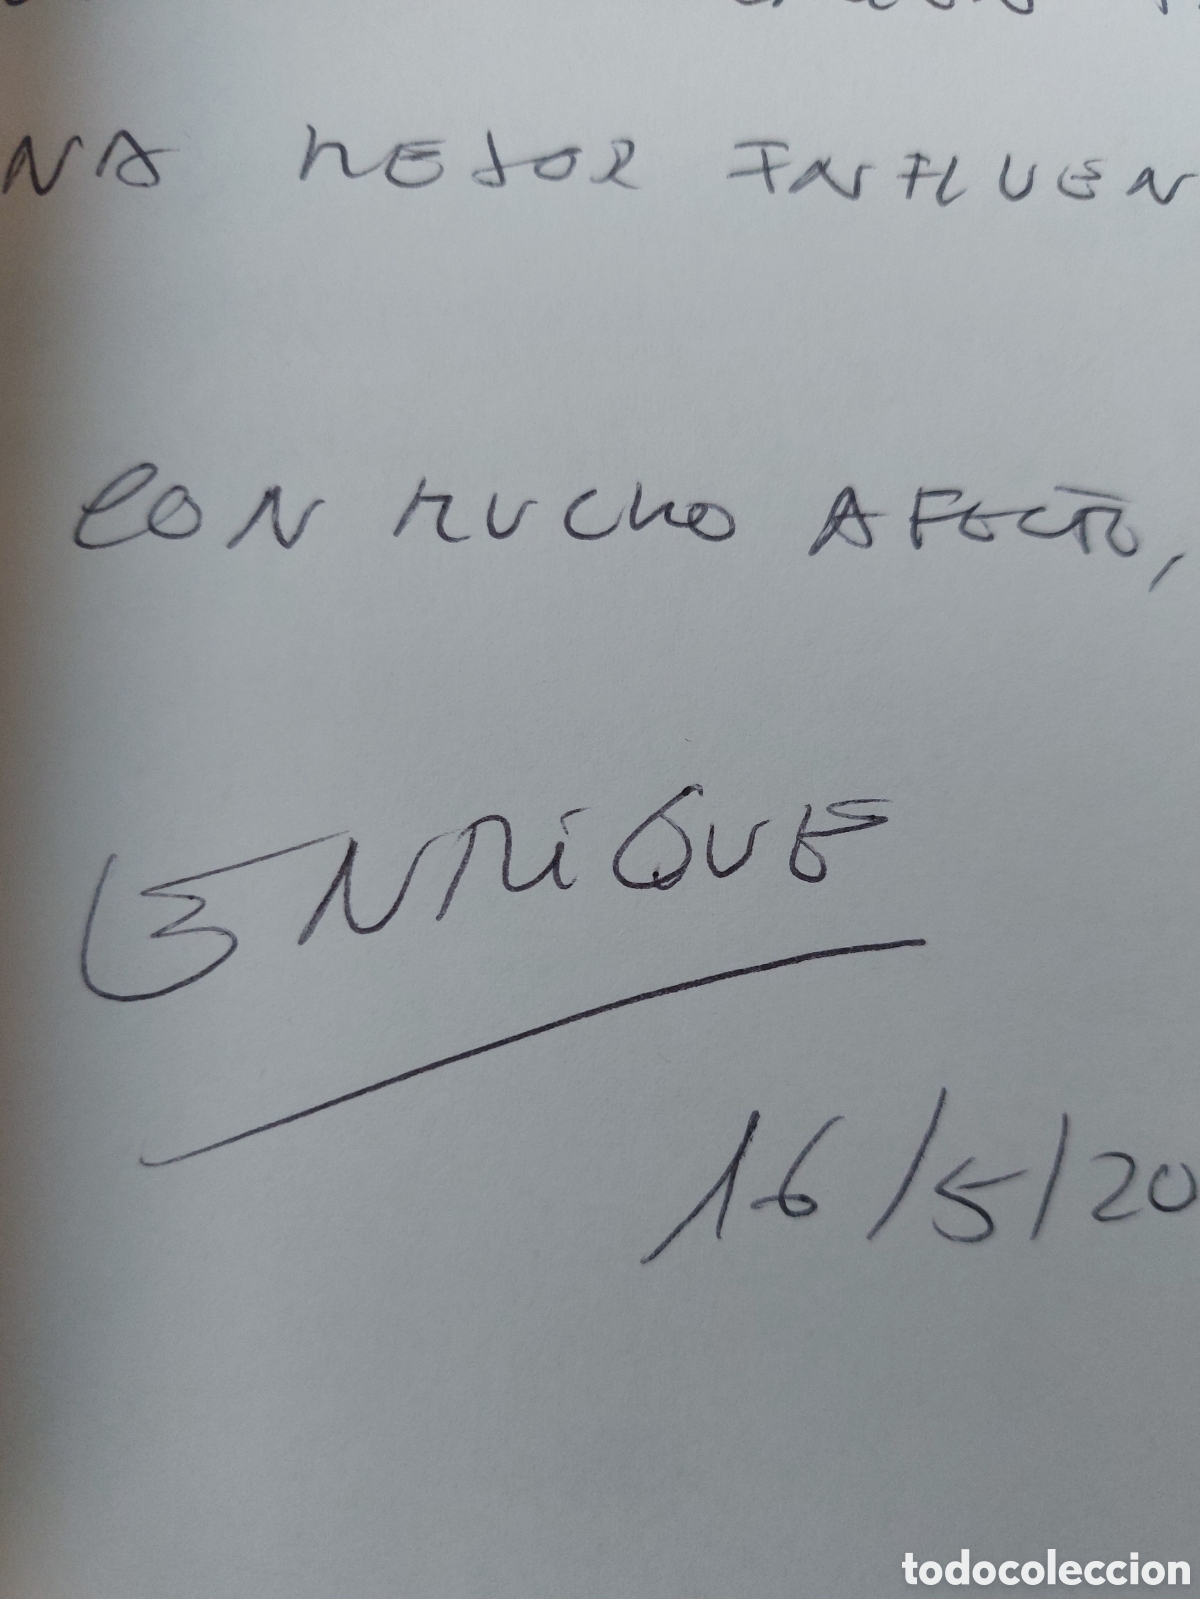 NA MEJOR INFLUEN
CON MUCHO AFECTO,
ENRIQUE
16/5/20
todocoleccion